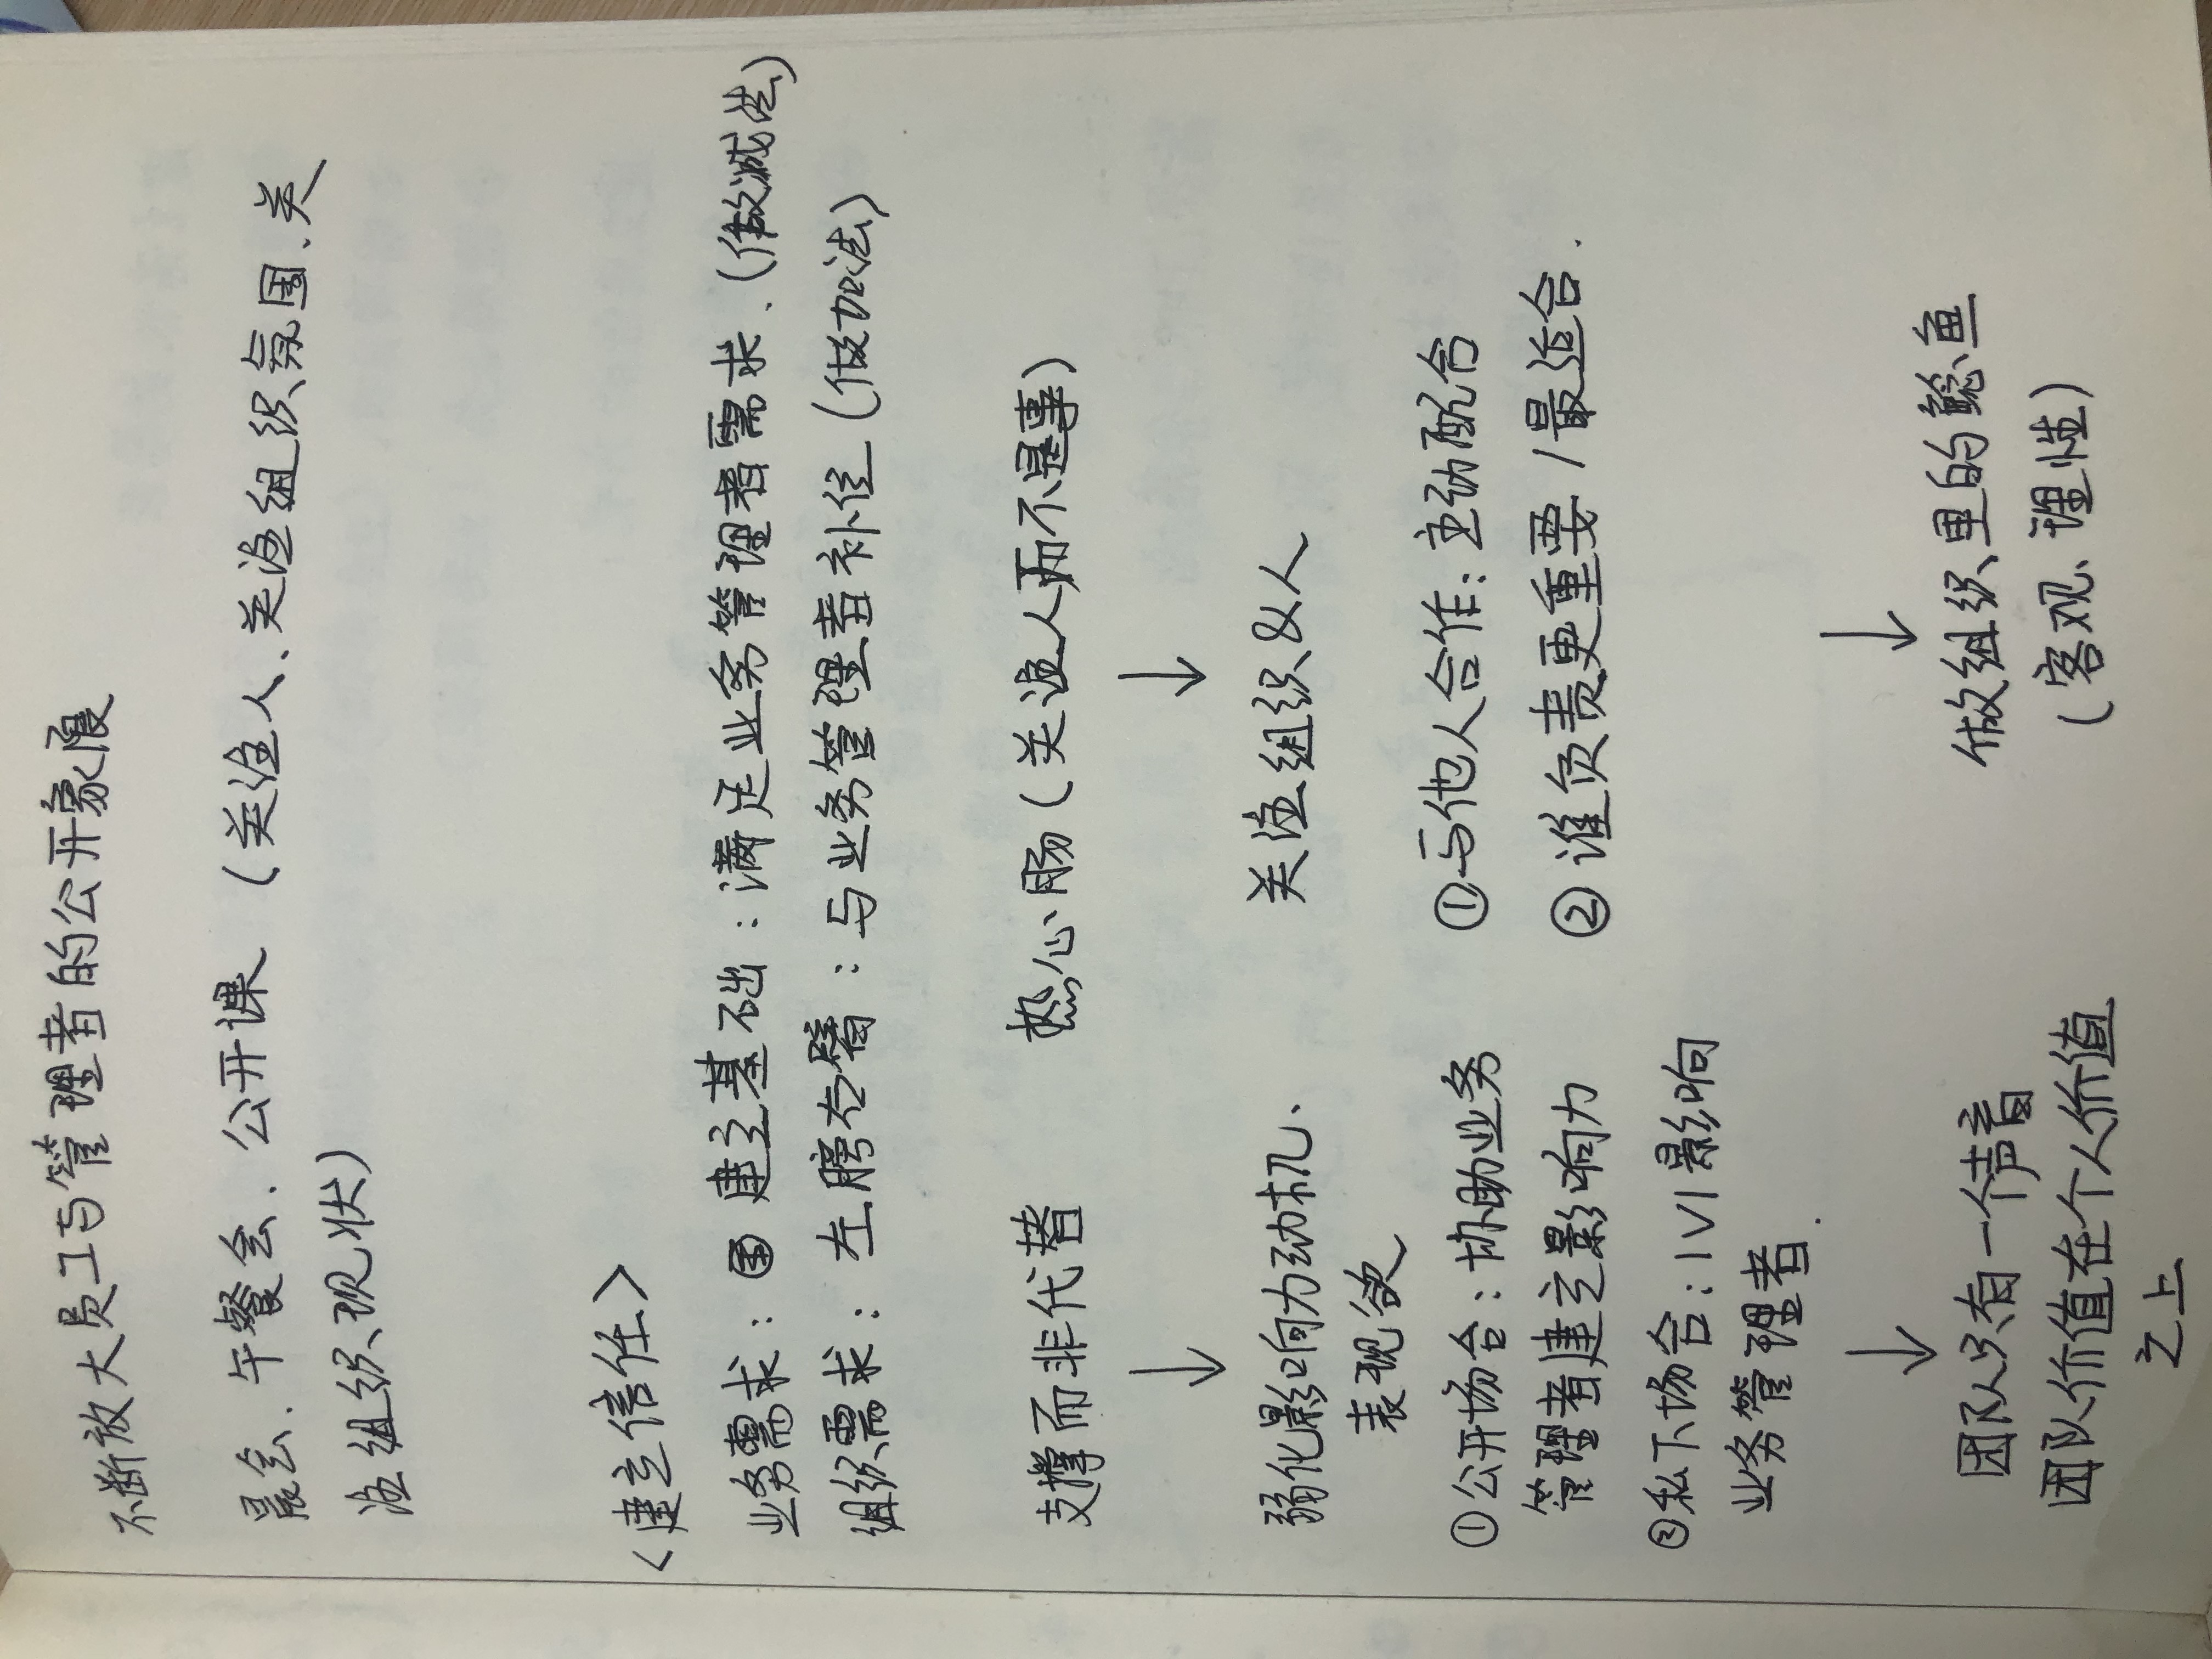 不断放大员工与管理者的公开象限
晨会、午餐会、公开课（关注人、关注组织氛围、关
注组织现状）
<建立信任>
业务需求：建立基础：满足业务管理者需求、（做减法）
组织需求：左膀右臂：与业务管理者补位（做加法）
支撑而非代替 热心肠（关注人而不是事）
↓ ↓
弱化影响力动机、 关注组织&人
表现欲
①公开场合：协助业务 ①与他人合作：主动配合
管理者建立影响力 ②谁负责更重要/最适合.
②私下场合：1V1影响
业务管理者.
↓ ↓
团队只有一个声音 做组织里的鲶鱼
团队价值在个人价值 （客观、理性）
之上